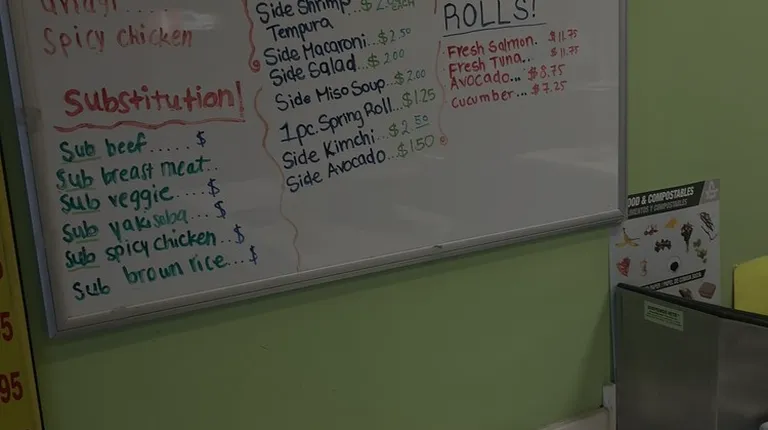 Spicy chicken
Substitution!
Sub beef...... $
Sub breast meat..
Sub veggie.... $
Sub yakisoba... $
Sub spicy chicken.. $
Sub brown rice... $
Side Shrimp
Tempura
Side Macaroni.. $2.50
Side Salad... $2.00
Side Miso Soup... $2.00
1pc. Spring Roll... $1.25
Side Kimchi... $2.50
Side Avocado... $1.50
ROLLS!
Fresh Salmon. $11.75
Fresh Tuna.. $11.75
Avocado... $8.75
Cucumber... $7.25
OOD & COMPOSTABLES
5
95